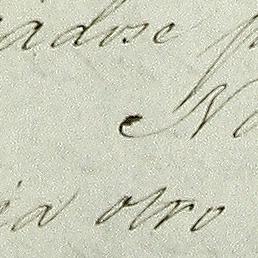 adose
No
ia otro